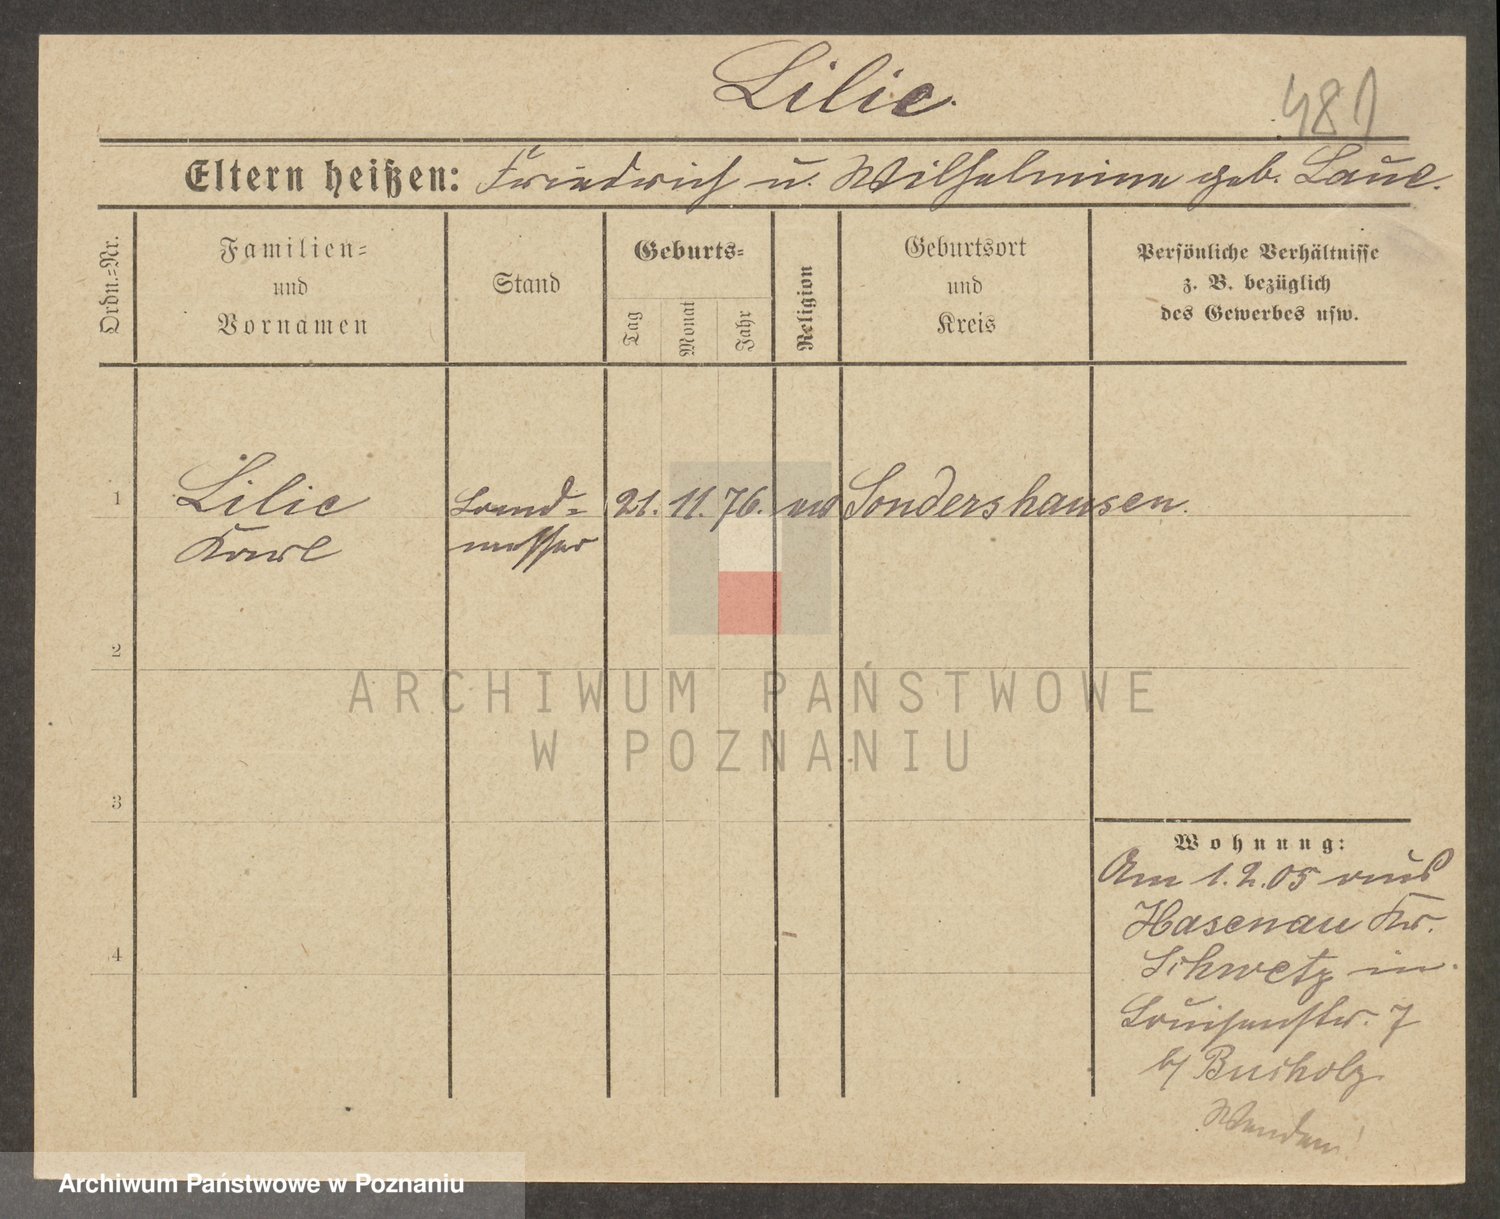 Lilie.
481
Eltern heißen: Friedrich u. Wilhelmine geb. Laue.
Ordn.=Nr.
Familien=
und
Vornamen
Stand
Geburts=
Tag
Monat
Jahr
Religion
Geburtsort
und
Kreis
Persönliche Verhältnisse
z. B. bezüglich
des Gewerbes usw.
1
Lilie
Karl
Land=
messer
21. 11. 76.
ev
Sondershausen.
2
3
4
Wohnung:
Am 1.2.05 aus
Hasenau Kr.
Schwetz in
Louisenstr. 7
b/ Bucholz
Wenden!
ARCHIWUM PAŃSTWOWE
W POZNANIU
Archiwum Państwowe w Poznaniu